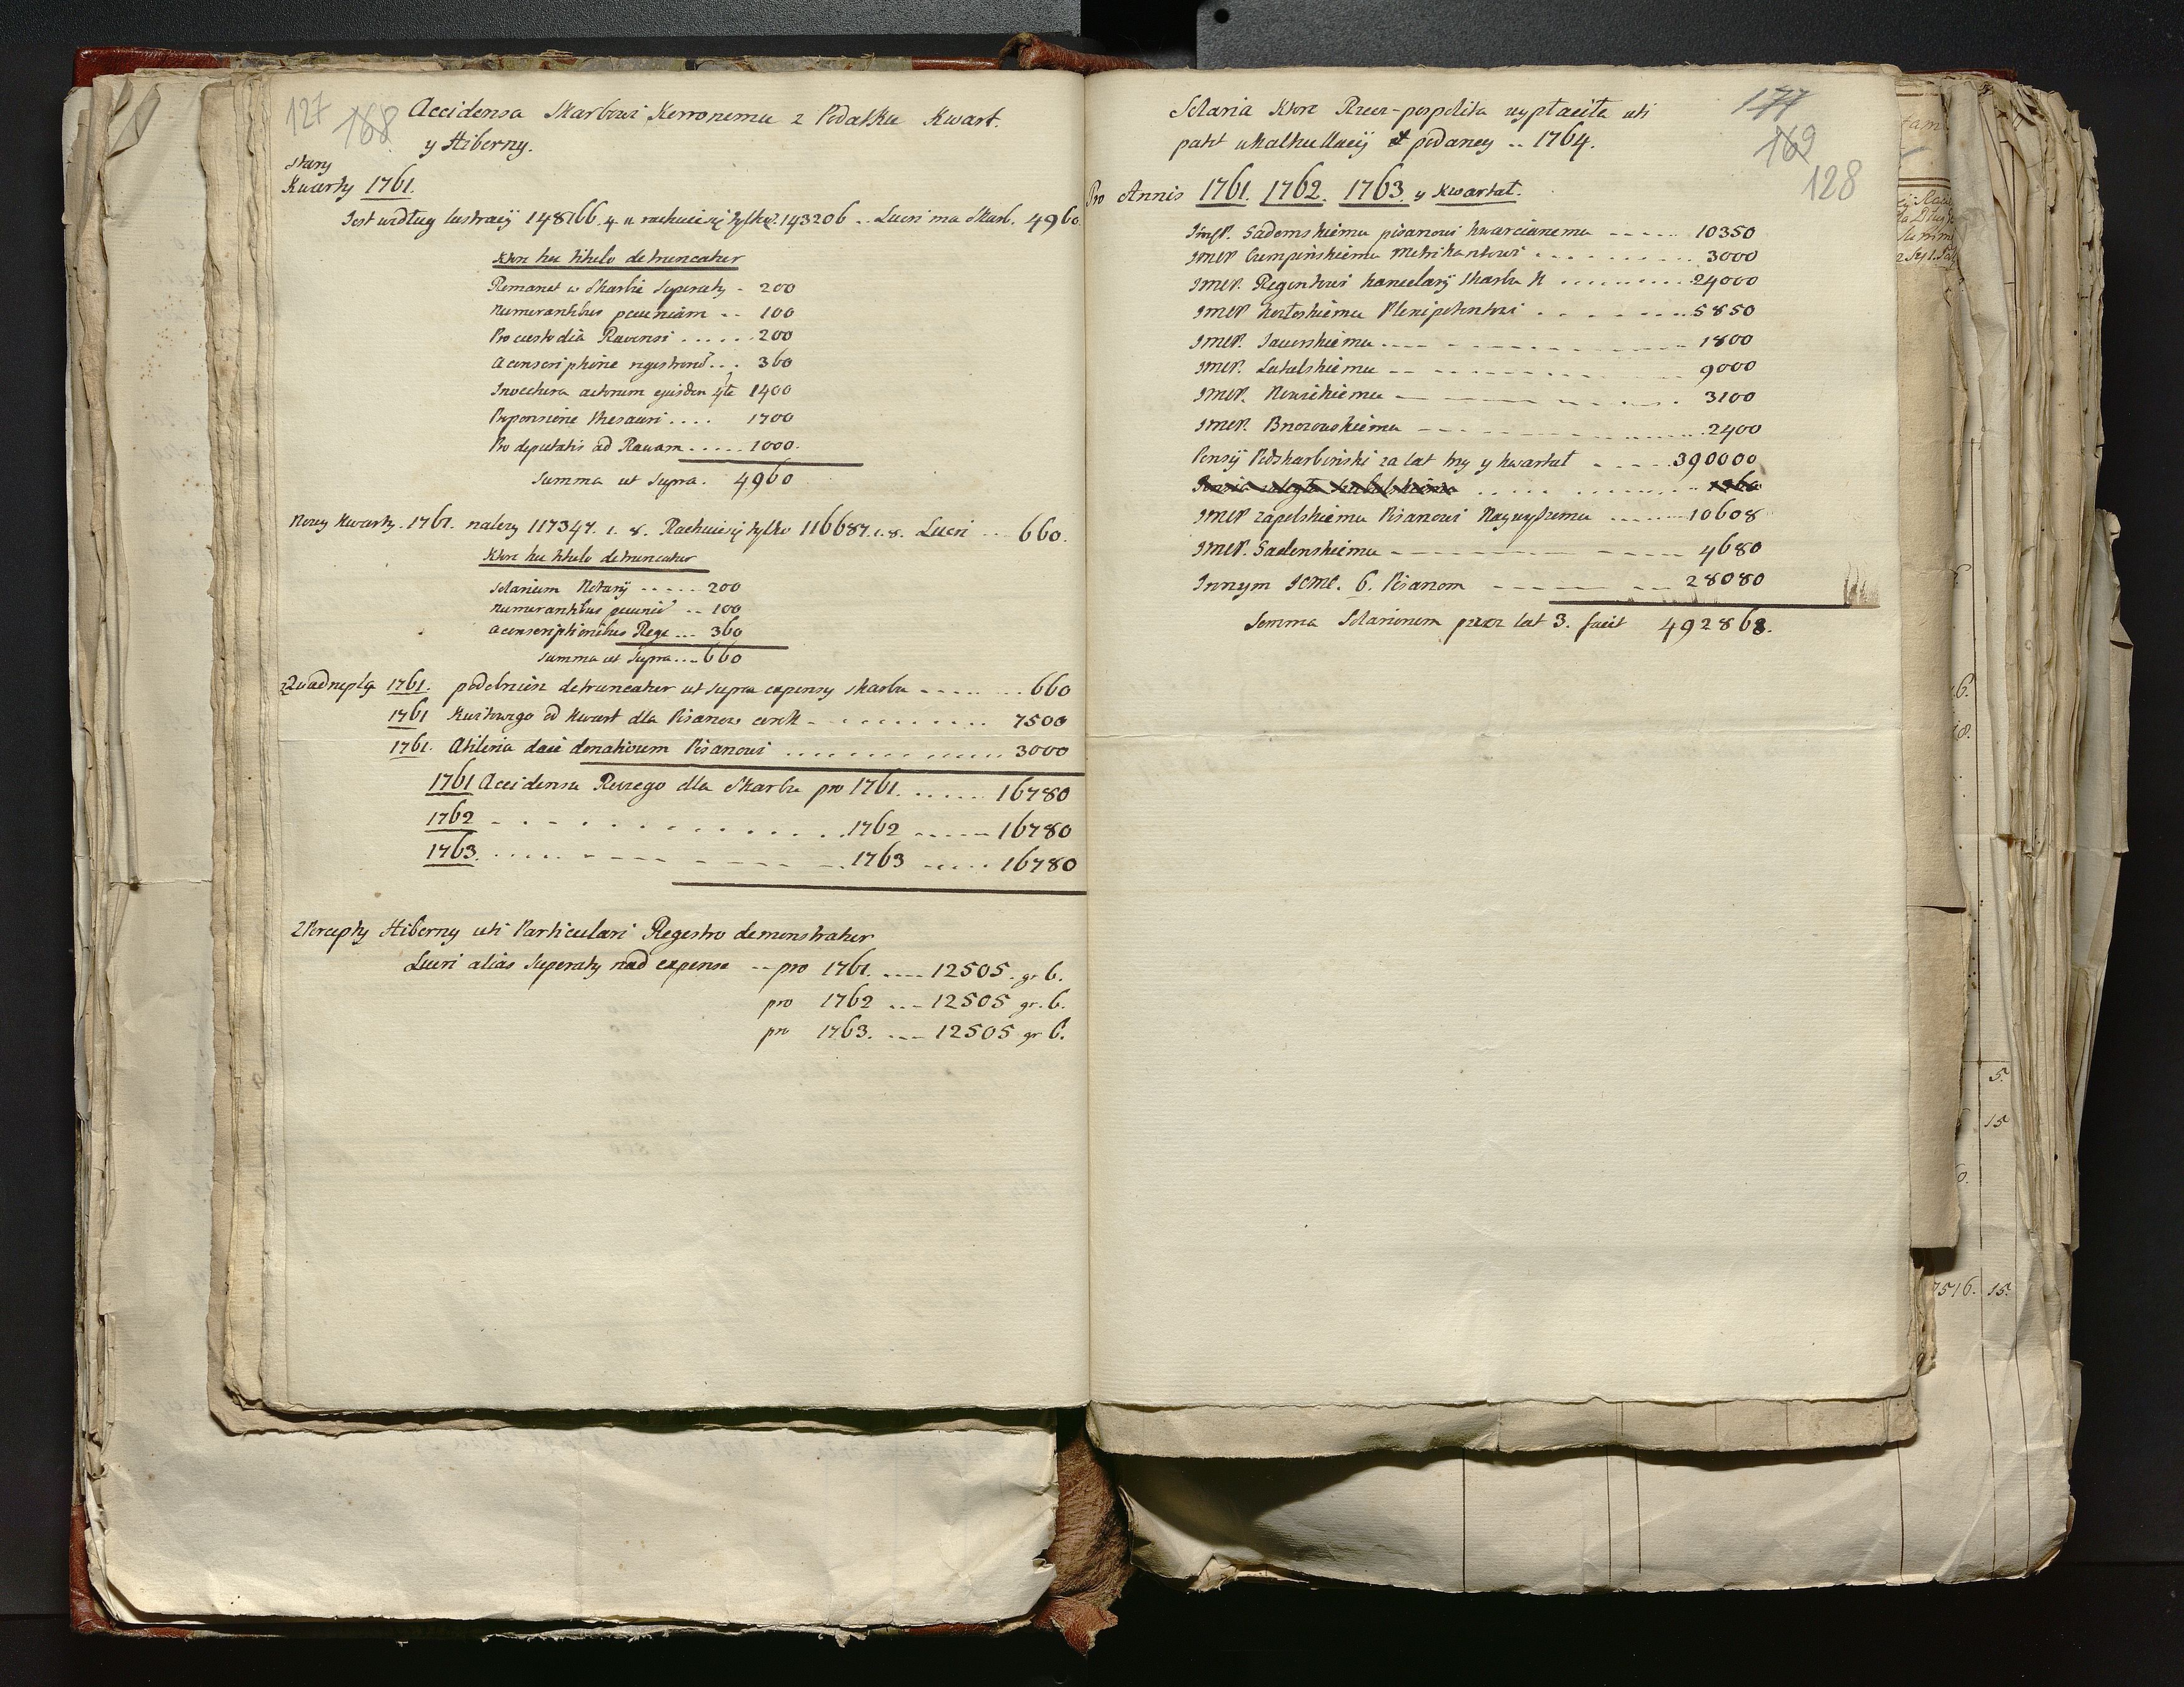 127 188
Accidensa Skarbowi Koronnemu z Podatku Kwart.
y Hiberny.
Stary
Kwarty 1761.
Jest według lustracij 148166. 4 a rachuie się tylko 143206 .. Lucri ma Skarb. 4960.
Które hu titulo detruncatur
Remanet w Skarbie Superaty - 200
Numerantibus pecuniam .. 100
Pro custodia Ravensi ...... 200
A conscriptione regestrorū ... 360
Invectura actorum ejusdem 4te 1400
Proponsione Thesauri .... 1700
Pro deputatis ad Rawam ..... 1000.
Summa ut Supra. 4960
Nowy Kwarty. 1761. należy 117347. 1. 8. Rachuie się tylko 116687. 1. 8. Lucri ... 660.
Które hu titulo detruncatur
Solarium Notarij ..... 200
Numerantibus pecuniā .. 100
a conscriptionibus Rege ... 360
Summa ut Supra .... 660
z Quadrupla 1761. podobnież detruncatur ut supra expensy skarbu ........ 660
1761 Kwitowego od Kwart dla Pisarzow ......... 7500
1761. Atileria daie donativum Pisarzowi ............ 3000
1761 Accidensu Rocznego dla Skarbu pro 1761. ...... 16780
1762 - . - . . . . . . . . . . . 1762 ...... 16780
1763. ..... - - - - - - 1763 ..... 16780
Z Percepty Hiberny uti Particulari Regestro demonstratur
Lucri alias Superaty nad expense -- pro 1761. .... 12505. gr 6.
pro 1762 ... 12505 gr. 6.
pro 1763. .... 12505 gr 6.
177
169
128
Solaria Które Rzecz-pospolita wypłaciła uti
patet w kalkullacij podaney .. 1764.
Pro Annis 1761. 1762. 1763. y Kwartał.
Imep. Sadomskiemu pisarzowi kwarcianemu ----- 10350
IMCP. Czempińskiemu Metrikantowi .......... 3000
IMCP. Regentowi kancelarij Skarbu K ......... 24000
IMCP Plenipotentowi ........ 5850
IMCP. ........ 1800
IMCP. ........ 9000
IMCP. ........ 3100
IMCP. Brzozowskiemu ........ 2400
Pensij Podskarbiński za lat trzy y kwartał ..... 390000
IMCP Zapolskiemu Pisarzowi Naywyższemu ...... 10608
IMCP. ........ 4680
Innym Ichmć. 6. Pisarzom ........ 28080
Summa Solariorum przez lat 3. facit 492868.
7516. 15.